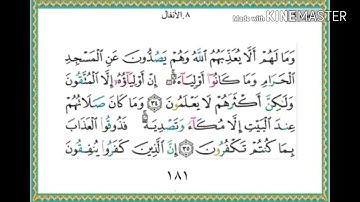 ٨ـ الأنفال
Made with KINEMASTER
وَمَا لَهُمْ أَلَّا يُعَذِّبَهُمُ ٱللَّهُ وَهُمْ يَصُدُّونَ عَنِ ٱلْمَسْجِدِ
ٱلْحَرَامِ وَمَا كَانُوٓا۟ أَوْلِيَآءَهُۥٓ ۚ إِنْ أَوْلِيَآؤُهُۥٓ إِلَّا ٱلْمُتَّقُونَ
وَلَٰكِنَّ أَكْثَرَهُمْ لَا يَعْلَمُونَ ٣٤ وَمَا كَانَ صَلَاتُهُمْ
عِندَ ٱلْبَيْتِ إِلَّا مُكَآءً وَتَصْدِيَةً ۚ فَذُوقُوا۟ ٱلْعَذَابَ
بِمَا كُنتُمْ تَكْفُرُونَ ٣٥ إِنَّ ٱلَّذِينَ كَفَرُوا۟ يُنفِقُونَ
١٨١